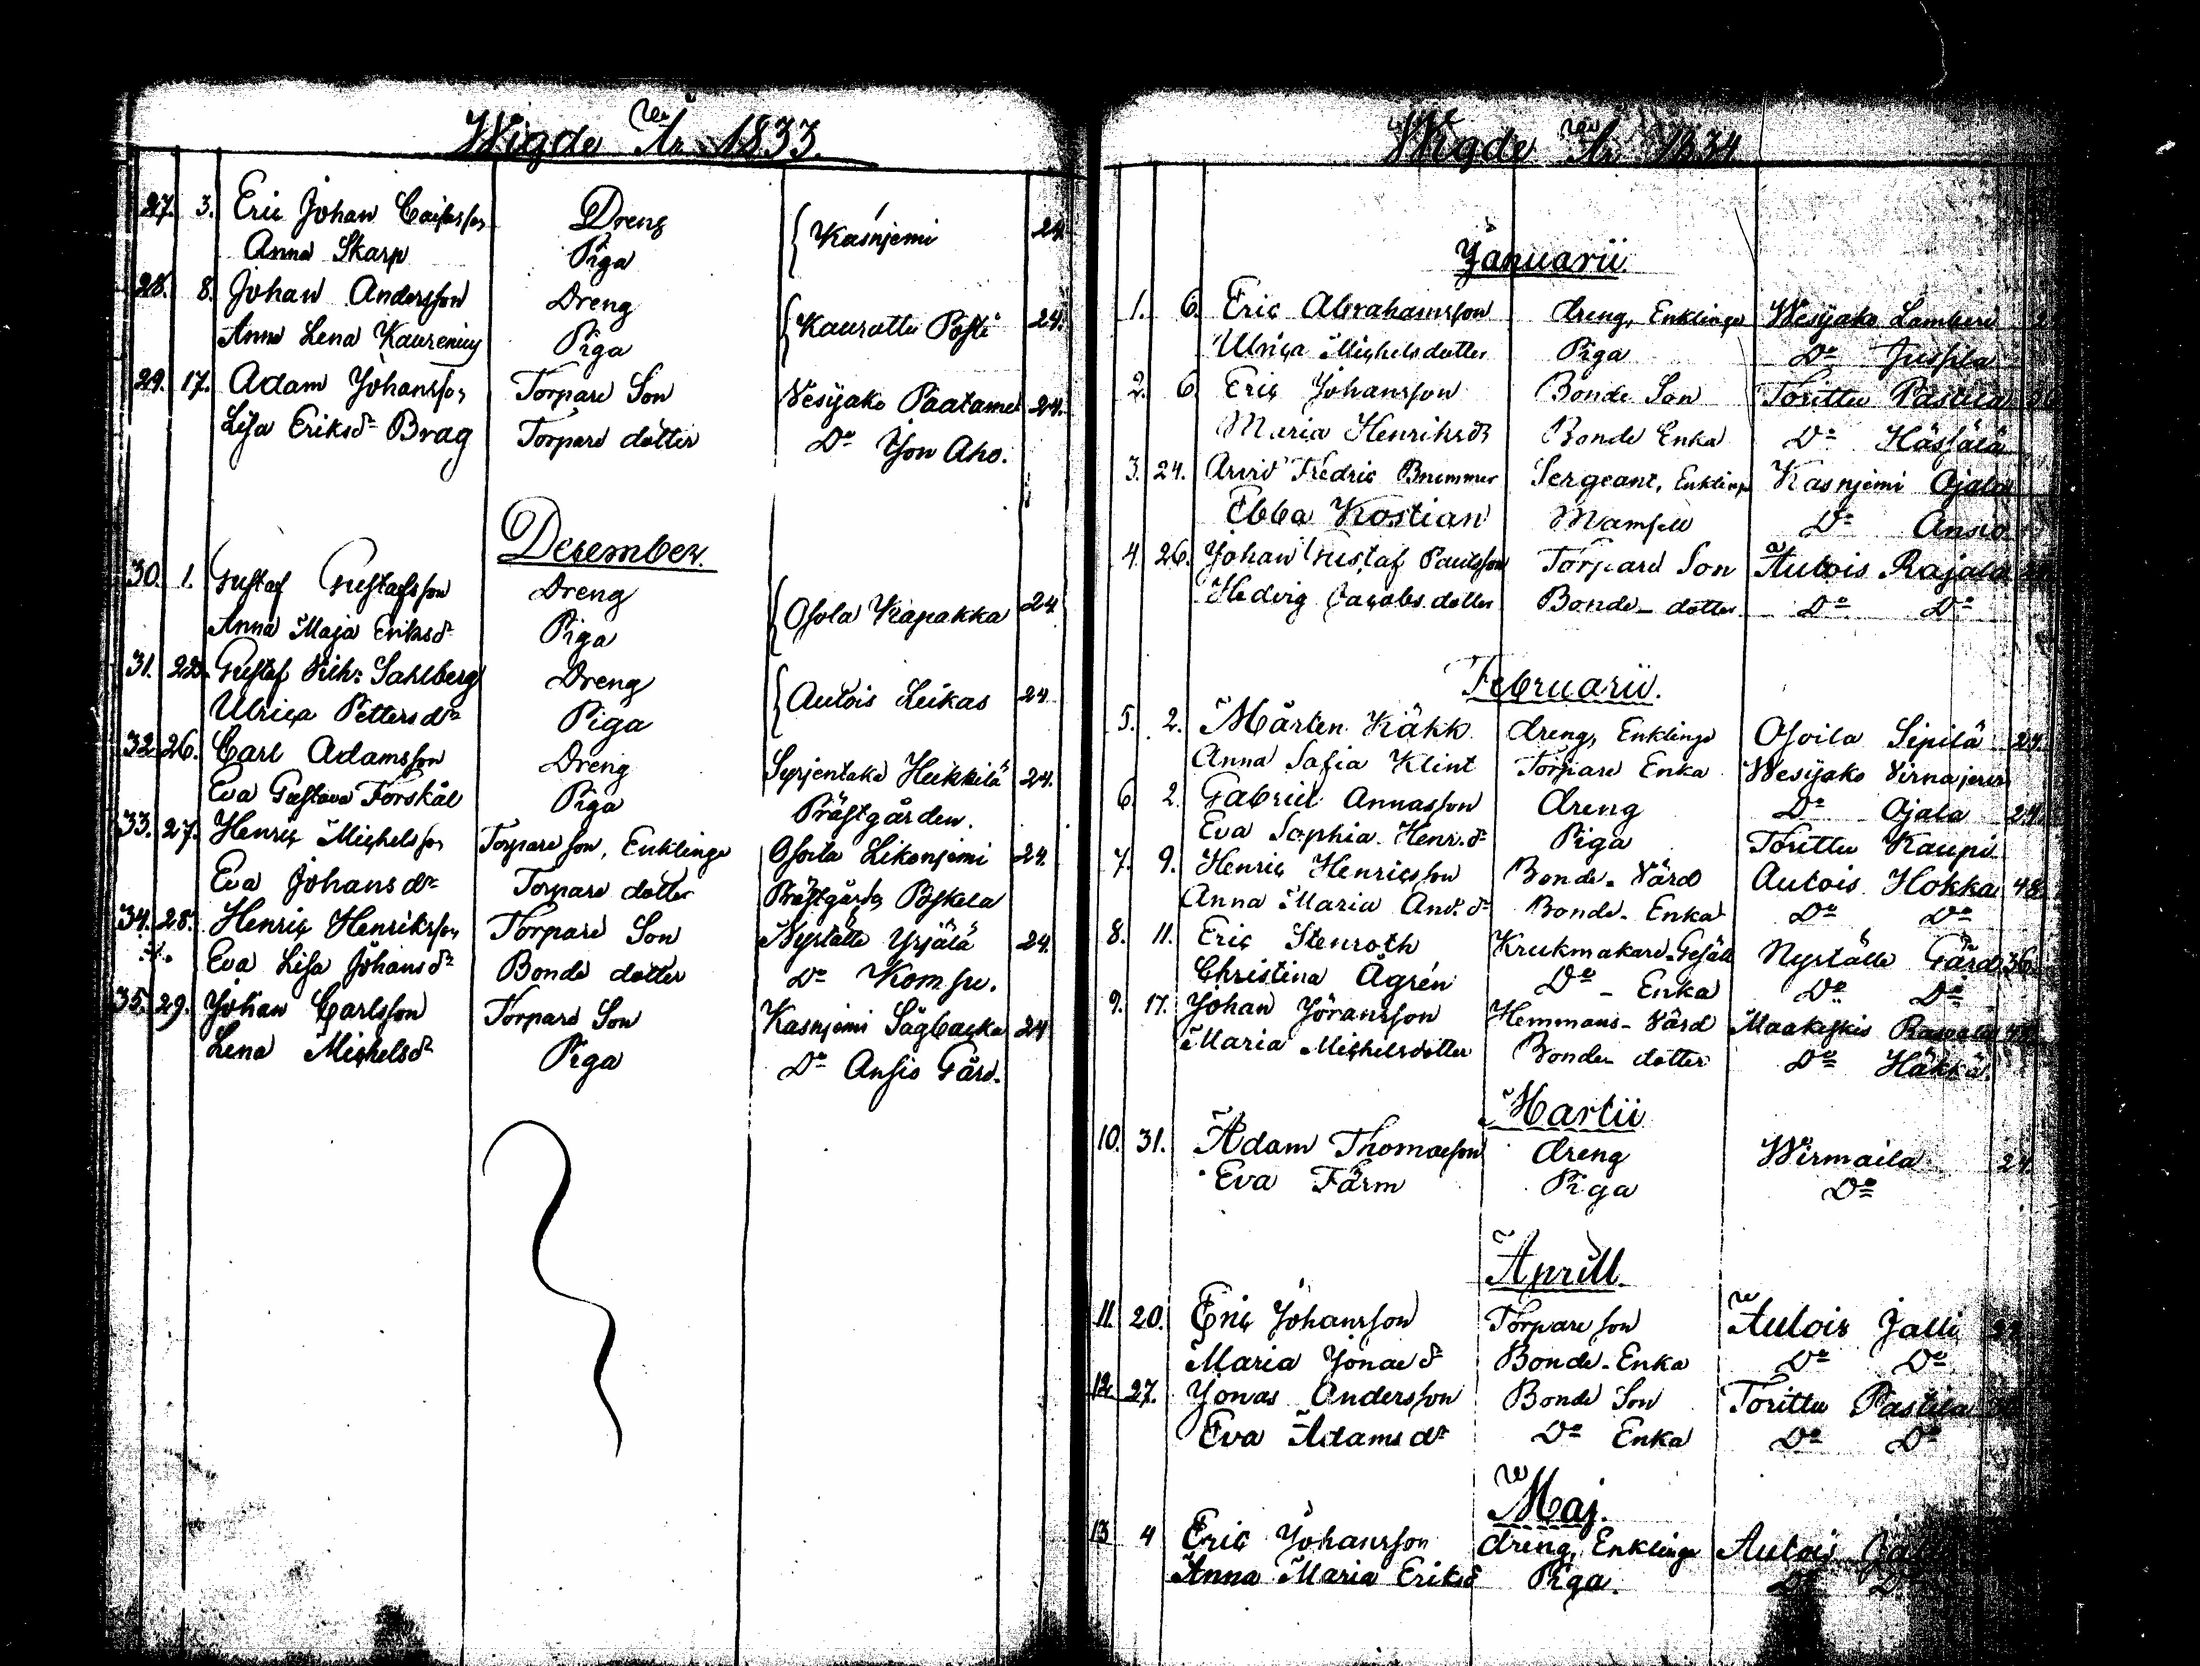 Wigde År 1833.
27. 3. Eric Johan Dreng Kasnjemi 24.
Anna Skarp Piga
28. 8. Johan Andersson Dreng Kaurottu Posti 24.
Anna Lena Kaurenius Piga
29. 17. Adam Johansson Torpare Son Vesijako Paatamet 24.
Lisa Eriksdr Brag Torpare dotter Do Ison Aho.
December.
30. 1. Gustaf Gustafsson Dreng Osola Kapakka 24
Anna Maja Eriksdr Piga
31. 22. Gustaf Vilh. Sahlberg Dreng Autois Leikas 24
Ulrica Pettersdr Piga
32. 26. Carl Adamsson Dreng Syrjentaka Heikkilä 24.
Eva Gustava Forskål Piga Prästgården.
33. 27. Henric Michelsson Torpare son, Enklinge Osoila Likonjemi 24.
Eva Johansdr Torpare dotter Prästgårds Poskela
34. 28. Henric Henriksson Torpare Son Nystälte Yrjälä 24
Eva Lisa Johansdr Bonde dotter Do Komsu.
35. 29. Johan Carlsson Torpare Son Kasnjemi Sågbacka 24
Lena Michelsdr Piga Do Ansio Gård.
Wigde År 1834
Januarii.
1. 6. Eric Abrahamsson dreng, Enklinge Wesijako Lamberi
Ulrica Michelsdotter Piga Do Jussila
2. 6. Eric Johansson Bonde Son Torittu Pastila
Maria Henriksdr Bonde Enka Do
3. 24. Arvid Fredric Bremmer Sergeant, Enkling Kasnjemi Ojala
Ebba Kostian Mamsell Do Ansio
4. 26. Johan Gustaf Paulsson Torpare Son Autois Rajala
Hedvig Jacobs dotter Bonde-dotter Do Do
Februarii.
5. 2. Mårten Käkk dreng, Enklinge Osoila Sipilä 24.
Anna Safia Klint Torpare Enka Wesijako Virnajervi
6. 2. Gabriel Annasson dreng Do Ojala 24.
Eva Sophia Henr.dr Piga Torittu Kaupi
7. 9. Henric Henricsson Bonde-Värd Autois Hokka 48
Anna Maria And.dr Bonde-Enka Do Do
8. 11. Eric Stenroth Krukmakare-Gesäll Nystälte Gård 36.
Christina Ågrén Do - Enka Do Do
9. 17. Johan Jöransson Hemmans-Värd Maakeskis
Maria Michelsdotter Bonde dotter Do Häkkä.
Martii
10. 31. Adam Thomasson dreng Wirmaila 24.
Eva Färm Piga Do
Aprill.
11. 20. Eric Johansson Torpare son Autois Jalli
Maria Jonaedr Bonde-Enka Do Do
12. 27. Jonas Andersson Bonde Son Torittu Pastila
Eva Adamsdr Do Enka Do Do
Maj.
13 4 Eric Johansson dreng, Enklinge Autois
Anna Maria Eriksd Piga. Do Do